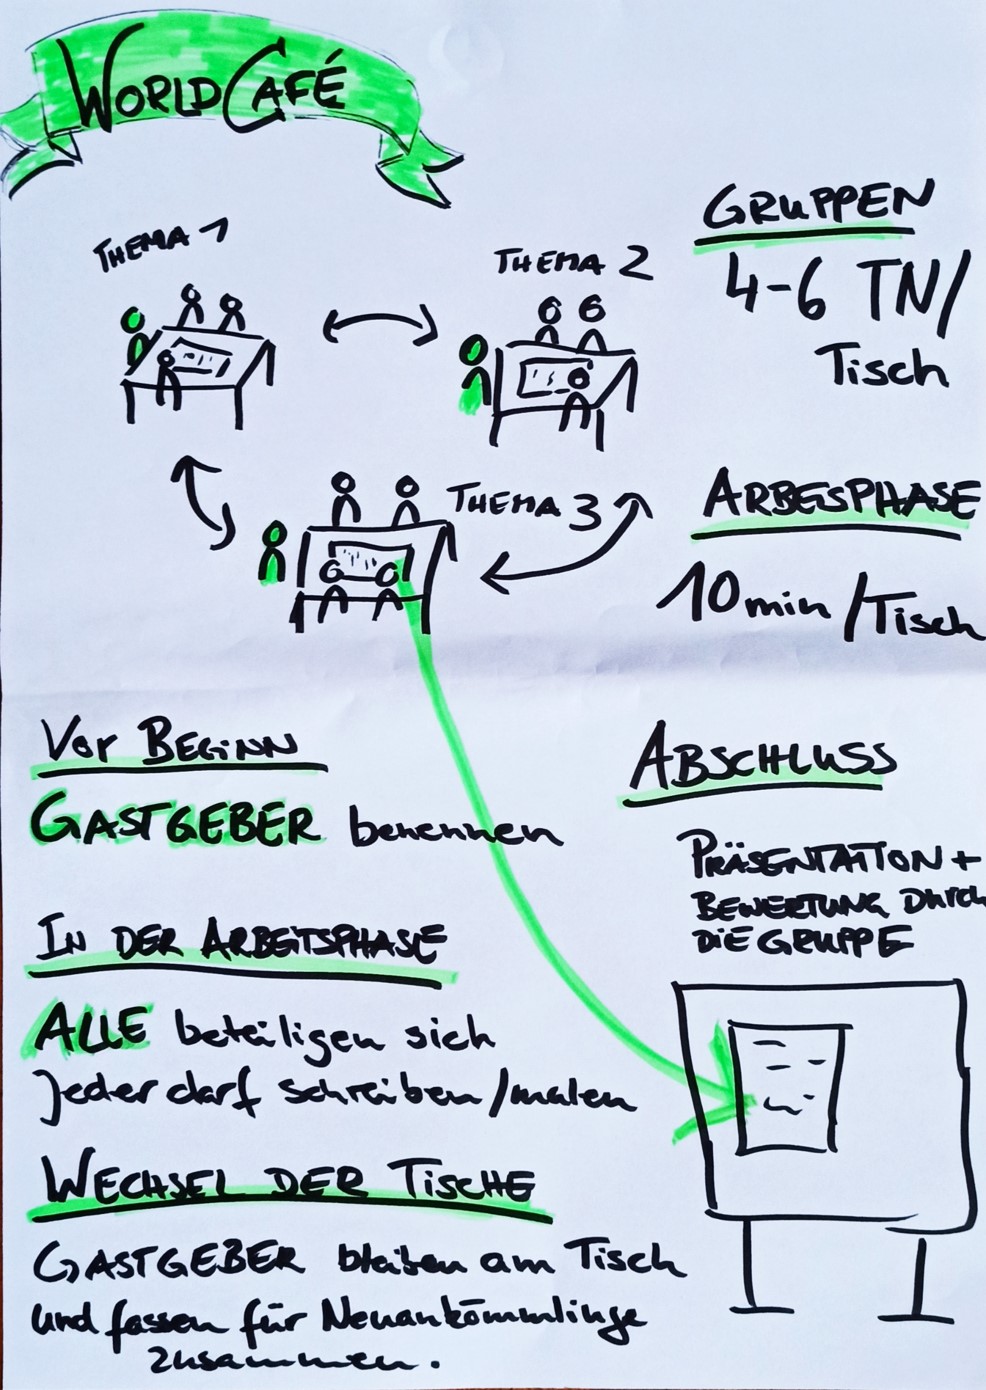 WORLD CAFÉ
THEMA 1
THEMA 2
THEMA 3
GRUPPEN
4-6 TN/
Tisch
ARBEISPHASE
10 min/Tisch
Vor BEGINN
GASTGEBER benennen
IN DER ARBEITSPHASE
ALLE beteiligen sich
jeder darf schreiben/malen
WECHSEL DER TISCHE
GASTGEBER bleiben am Tisch
und fassen für Neuankömmlinge
zusammen.
ABSCHLUSS
PRÄSENTATION +
BEWERTUNG Durch
DIE GRUPPE